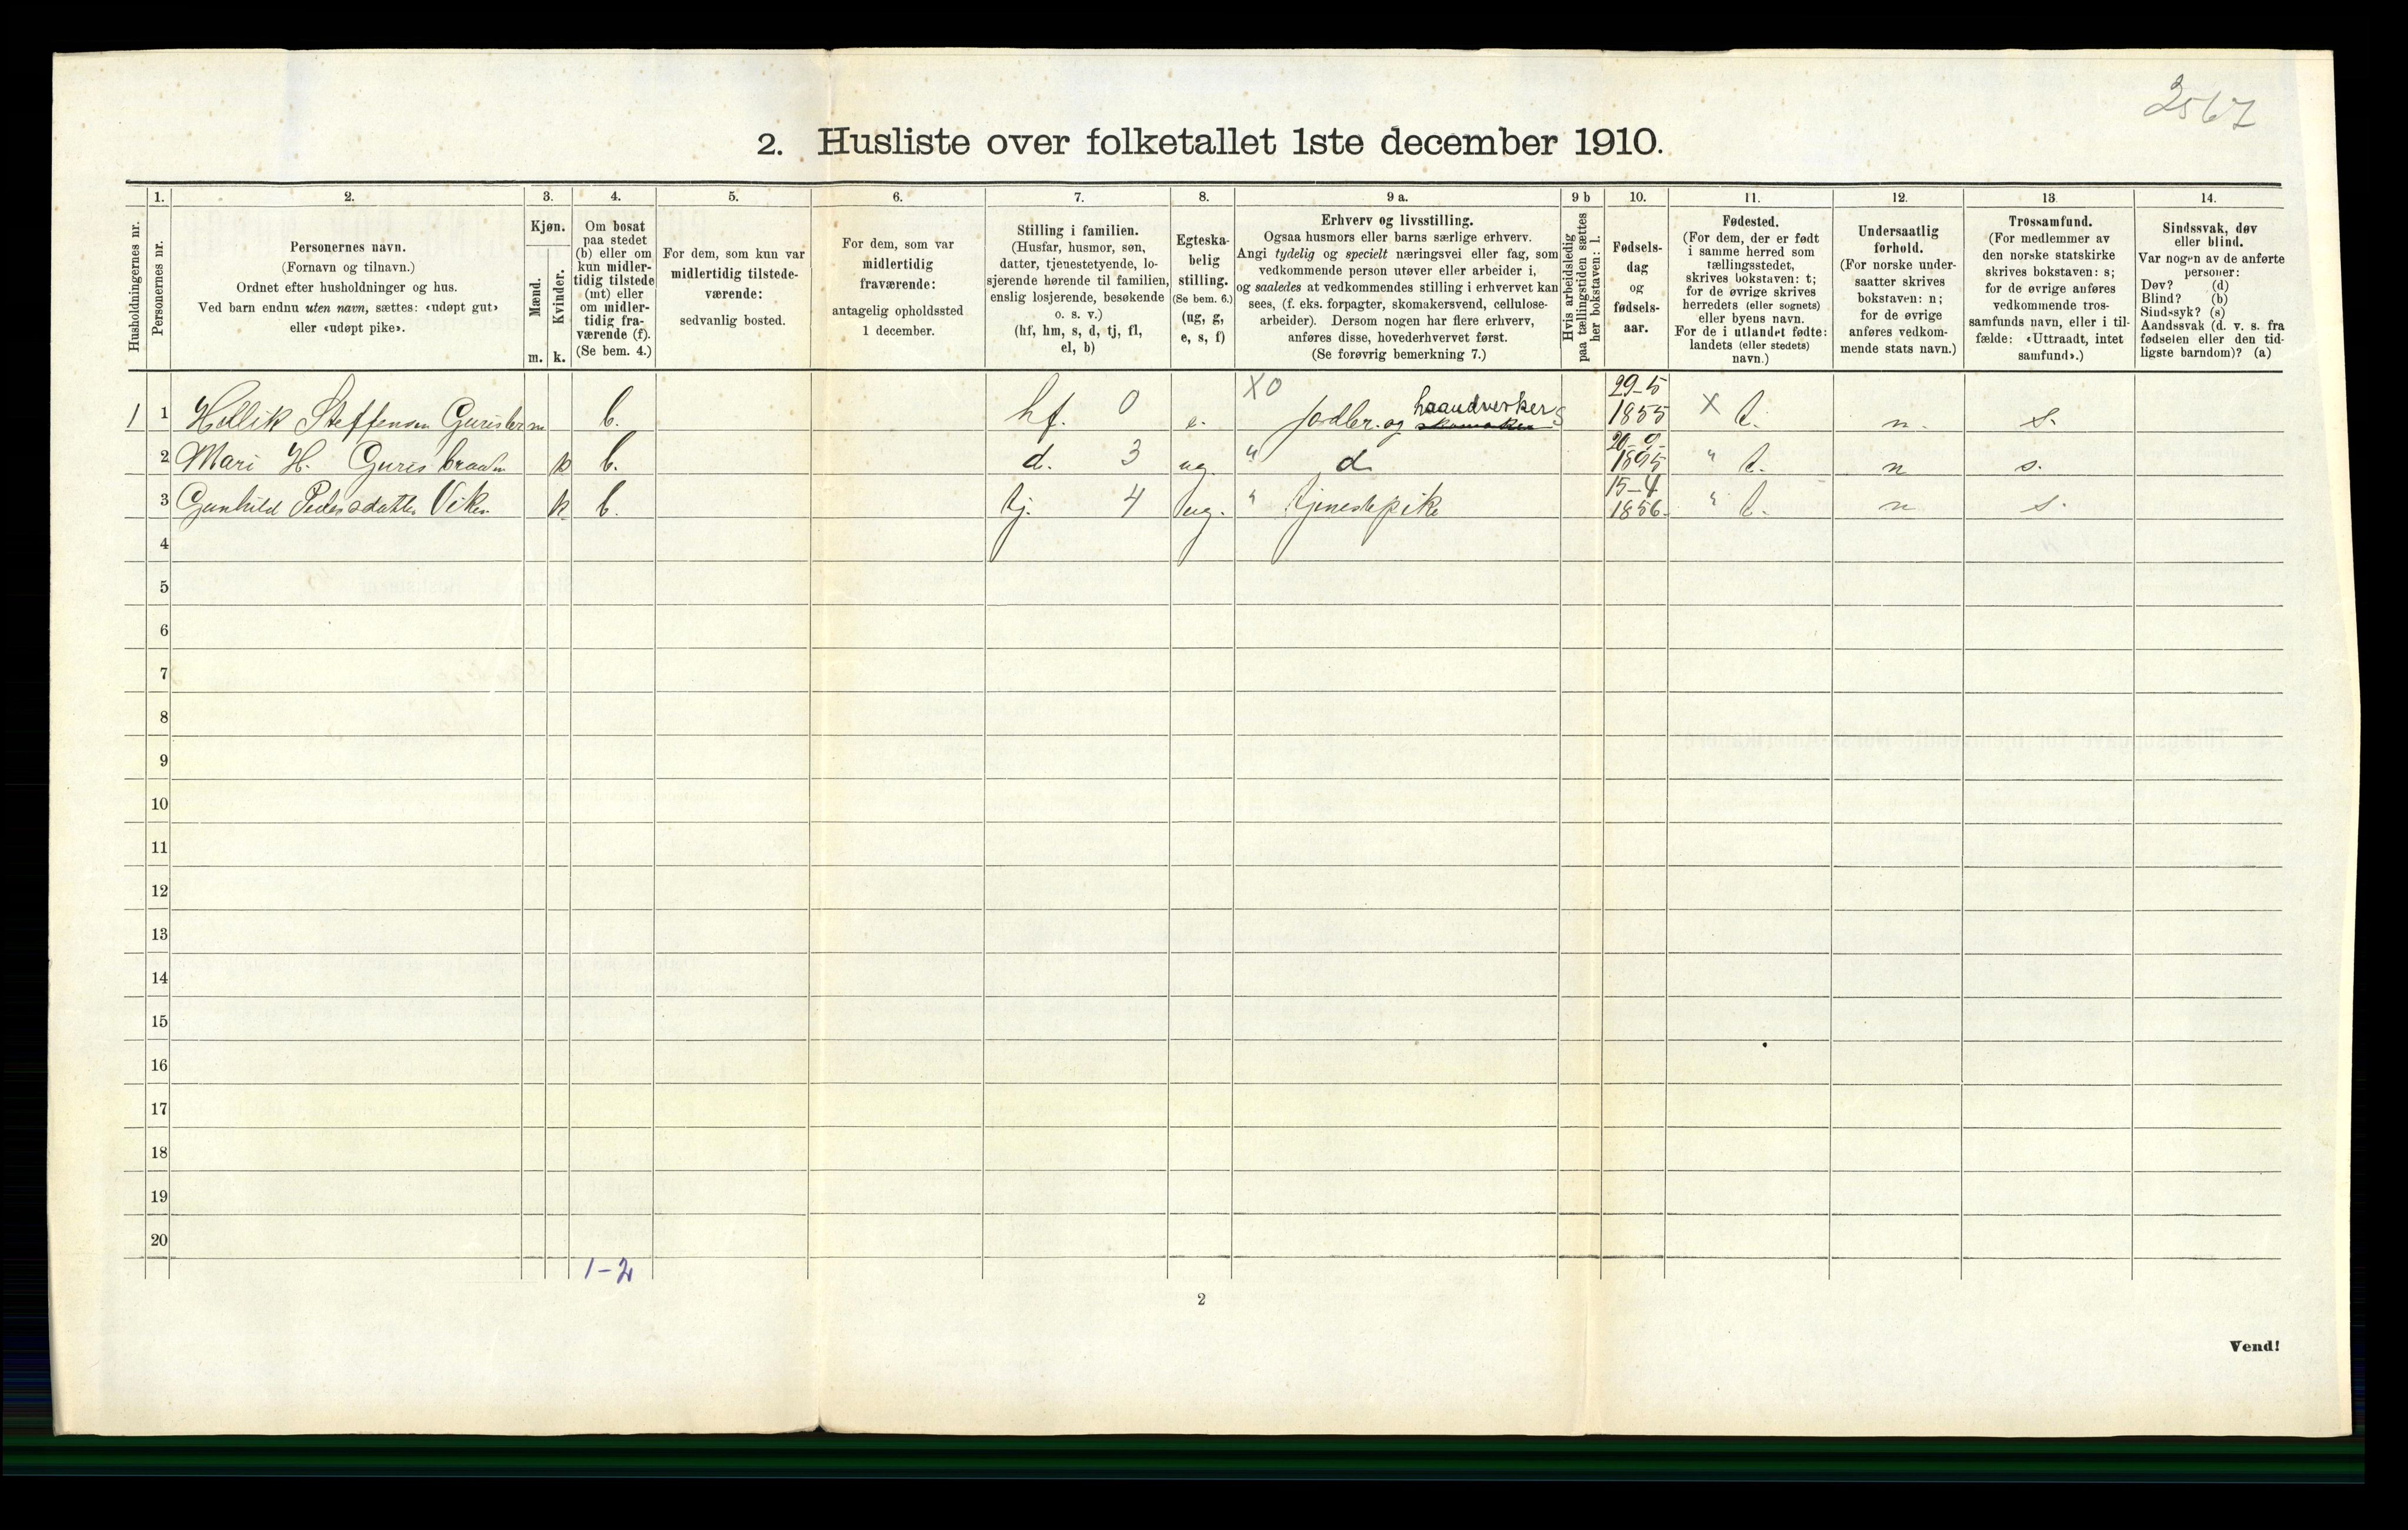 2567
2. Husliste over folketallet 1ste december 1910.
Husholdningernes nr.
1.
Personernes nr.
2.
Personernes navn.
(Fornavn og tilnavn.)
Ordnet efter husholdninger og hus.
Ved barn endnu uten navn, sættes: «udøpt gut»
eller «udøpt pike».
3.
Kjøn.
Mænd.
Kvinder.
m. k.
4.
Om bosat
paa stedet
(b) eller om
kun midler-
tidig tilstede
(mt) eller
om midler-
tidig fra-
værende (f).
(Se bem. 4.)
5.
For dem, som kun var
midlertidig tilstede-
værende:
sedvanlig bosted.
6.
For dem, som var
midlertidig
fraværende:
antagelig opholdssted
1 december.
7.
Stilling i familien.
(Husfar, husmor, søn,
datter, tjenestetyende, lo-
sjerende hørende til familien,
enslig losjerende, besøkende
o. s. v.)
(hf, hm, s, d, tj, fl,
el, b)
8.
Egteska-
belig
stilling.
(Se bem. 6.)
(ug, g,
e, s, f)
9 a.
Erhverv og livsstilling.
Ogsaa husmors eller barns særlige erhverv.
Angi tydelig og specielt næringsvei eller fag, som
vedkommende person utøver eller arbeider i,
og saaledes at vedkommendes stilling i erhvervet kan
sees, (f. eks. forpagter, skomakersvend, cellulose-
arbeider). Dersom nogen har flere erhverv,
anføres disse, hovederhvervet først.
(Se forøvrig bemerkning 7.)
9 b
Hvis arbeidsledig
paa tællingstiden sættes
her bokstaven: l.
10.
Fødsels-
dag
og
fødsels-
aar.
11.
Fødested.
(For dem, der er født
i samme herred som
tællingsstedet,
skrives bokstaven: t;
for de øvrige skrives
herredets (eller sognets)
eller byens navn.
For de i utlandet fødte:
landets (eller stedets)
navn.)
12.
Undersaatlig
forhold.
(For norske under-
saatter skrives
bokstaven: n;
for de øvrige
anføres vedkom-
mende stats navn.)
13
Trossamfund.
(For medlemmer av
den norske statskirke
skrives bokstaven: s;
for de øvrige anføres
vedkommende tros-
samfunds navn, eller i til-
fælde: «Uttraadt, intet
samfund».)
14.
Sindssvak, døv
eller blind.
Var nogen av de anførte
personer:
Døv? (d)
Blind? (b)
Sindssyk? (s)
Aandssvak (d. v. s. fra
fødselen eller den tid-
ligste barndom)? (a)
1 1 Hellik Steffensen m b. hf. 0 e. X0 Jordbr. og haandverker skomaker 29-5 1855 X t. n. s.
2 Mari H. Gurisbraaten k b. d. 3 ug. " d 1895 " t. n s.
3 Gunhild Pedersdatter Viken k b. tj. 4 ug. " tjenestepike 15-4 1856 " t. n s.
4
5
6
7
8
9
10
11
12
13
14
15
16
17
18
19
20
1-2
2
Vend!